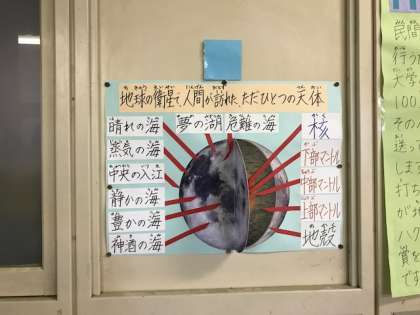 地球の衛星で、人間が訪れた、ただひとつの天体
晴れの海
夢の湖
危難の海
核
蒸気の海
下部マントル
中央の入江
中部マントル
静かの海
上部マントル
豊かの海
地殻
神酒の海
民間
行う
大学
100
その
送っ
します
打
が
ハク
賞を
です